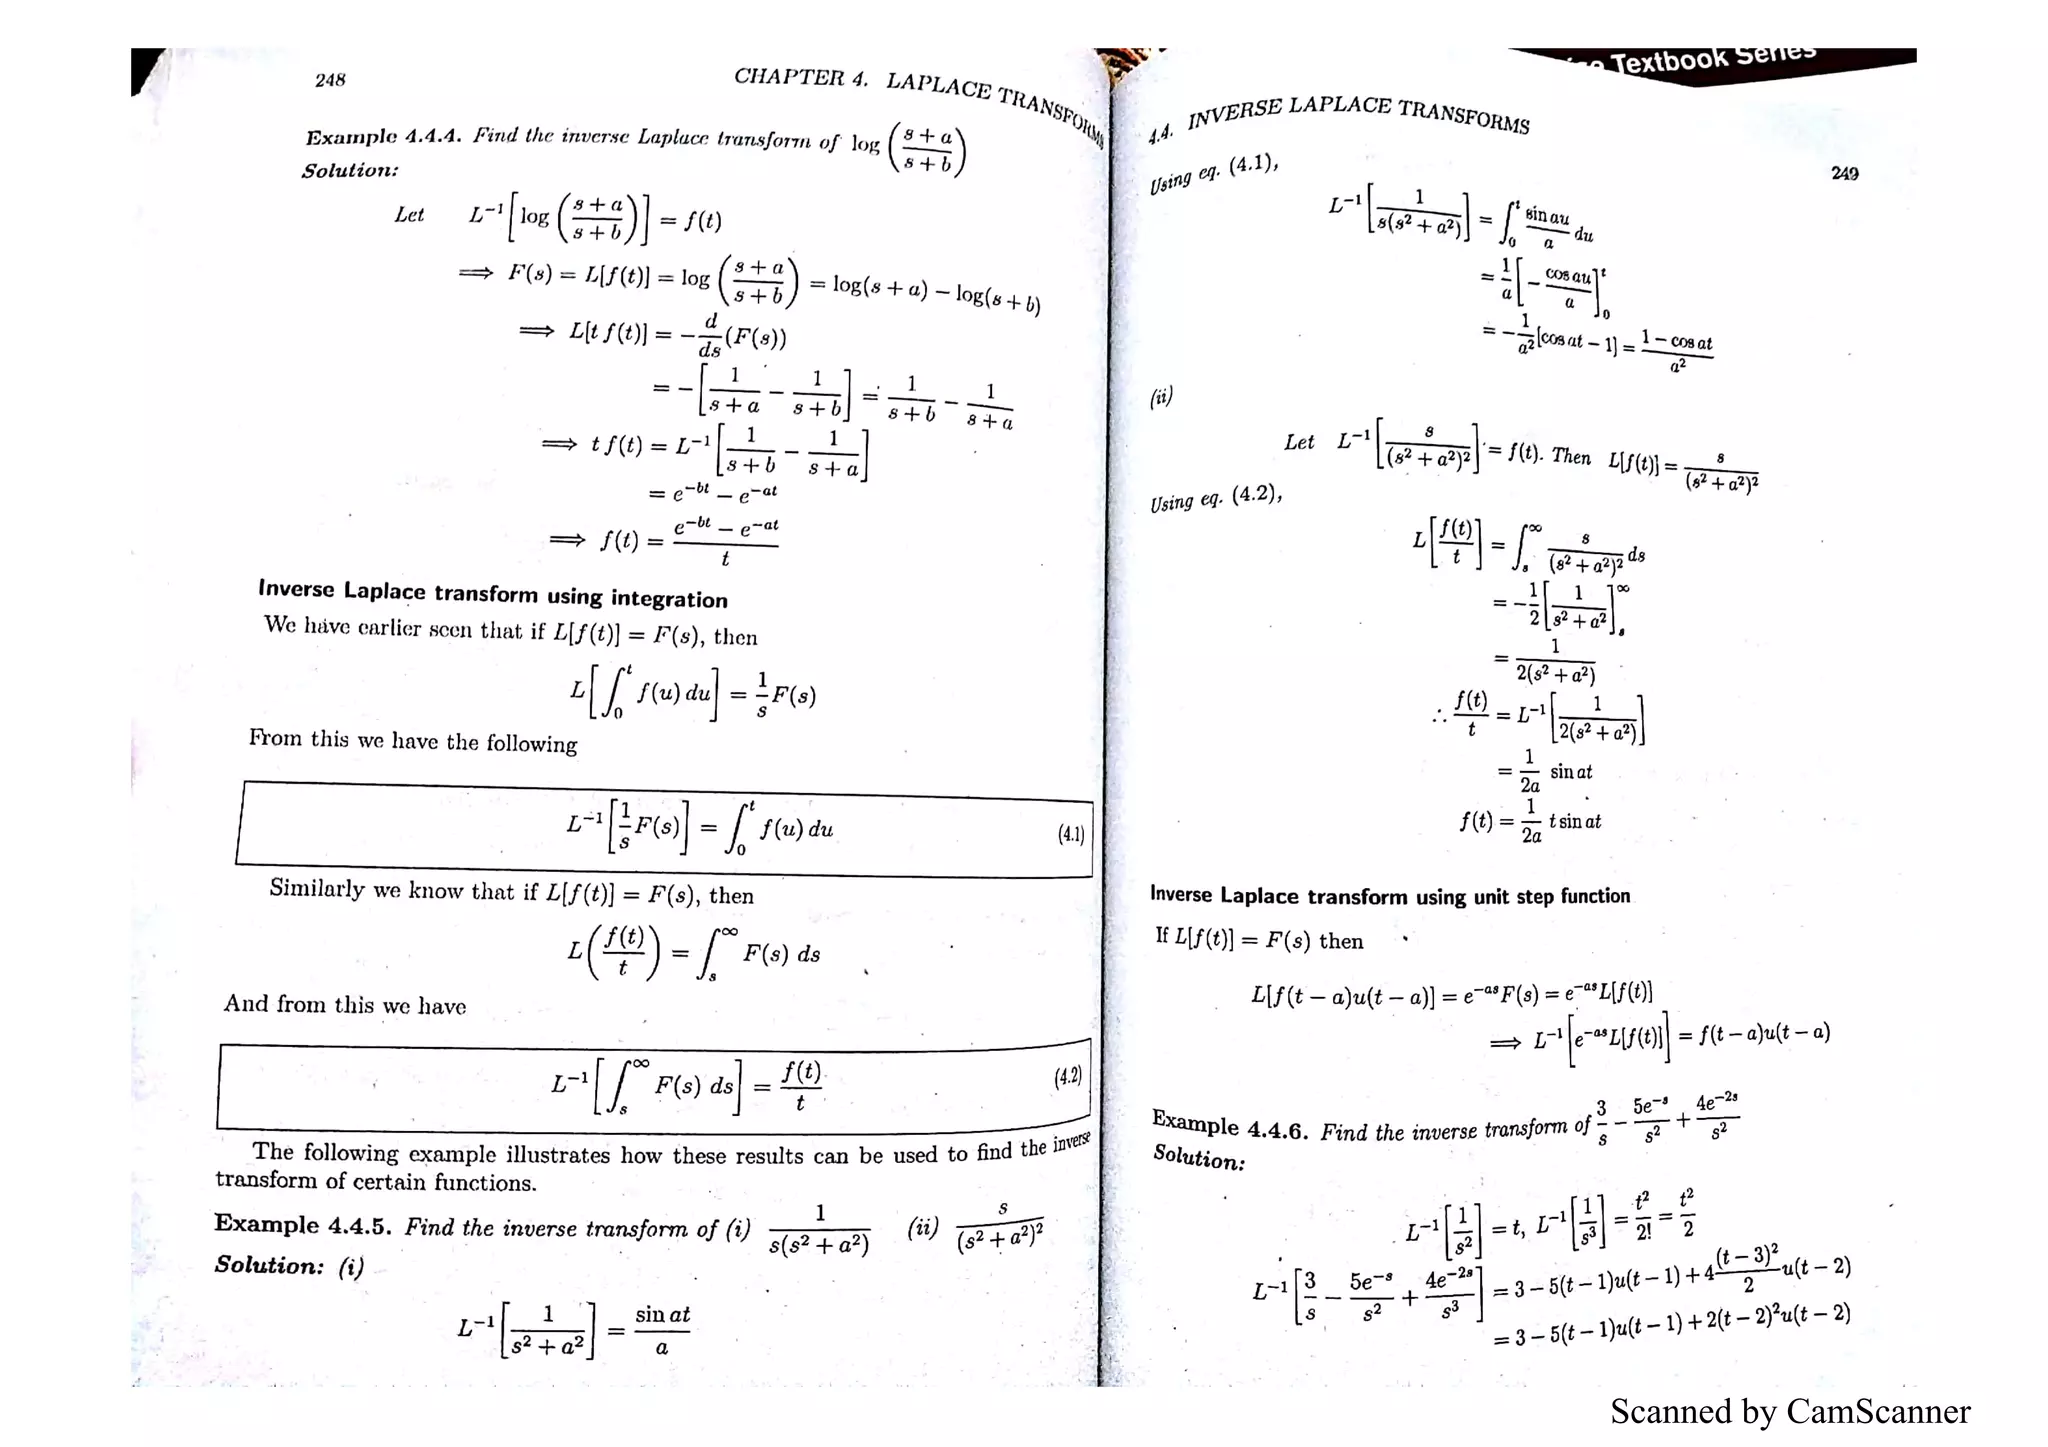 248
CHAPTER 4. LAPLACE TRANSFORMS
Example 4.4.4. Find the inverse Laplace transform of log ((s + a)/(s + b))
Solution:
Let L⁻¹[log ((s + a)/(s + b))] = f(t)
⟹ F(s) = L[f(t)] = log ((s + a)/(s + b)) = log(s + a) − log(s + b)
⟹ L[t f(t)] = −d/ds (F(s))
= −[1/(s + a) − 1/(s + b)] = 1/(s + b) − 1/(s + a)
⟹ t f(t) = L⁻¹[1/(s + b) − 1/(s + a)]
= e^(−bt) − e^(−at)
⟹ f(t) = (e^(−bt) − e^(−at))/t
Inverse Laplace transform using integration
We have earlier seen that if L[f(t)] = F(s), then
L[∫₀ᵗ f(u) du] = (1/s)F(s)
From this we have the following
L⁻¹[(1/s)F(s)] = ∫₀ᵗ f(u) du (4.1)
Similarly we know that if L[f(t)] = F(s), then
L(f(t)/t) = ∫ₛ^∞ F(s) ds
And from this we have
L⁻¹[∫ₛ^∞ F(s) ds] = f(t)/t (4.2)
The following example illustrates how these results can be used to find the inverse
transform of certain functions.
Example 4.4.5. Find the inverse transform of (i) 1/(s(s² + a²)) (ii) s/(s² + a²)²
Solution: (i)
L⁻¹[1/(s² + a²)] = sin at/a
Textbook Series
4.4. INVERSE LAPLACE TRANSFORMS
249
Using eq. (4.1),
L⁻¹[1/(s(s² + a²))] = ∫₀ᵗ (sin au/a) du
= (1/a)[−cos au/a]₀ᵗ
= −(1/a²)[cos at − 1] = (1 − cos at)/a²
(ii)
Let L⁻¹[s/(s² + a²)²] = f(t). Then L[f(t)] = s/(s² + a²)²
Using eq. (4.2),
L[f(t)/t] = ∫ₛ^∞ s/(s² + a²)² ds
= −(1/2)[1/(s² + a²)]ₛ^∞
= 1/(2(s² + a²))
∴ f(t)/t = L⁻¹[1/(2(s² + a²))]
= (1/2a) sin at
f(t) = (1/2a) t sin at
Inverse Laplace transform using unit step function
If L[f(t)] = F(s) then
L[f(t − a)u(t − a)] = e^(−as)F(s) = e^(−as)L[f(t)]
⟹ L⁻¹[e^(−as)L[f(t)]] = f(t − a)u(t − a)
Example 4.4.6. Find the inverse transform of 3/s − 5e^(−s)/s² + 4e^(−2s)/s²
Solution:
L⁻¹[1/s²] = t, L⁻¹[1/s³] = t²/2! = t²/2
L⁻¹[3/s − 5e^(−s)/s² + 4e^(−2s)/s³] = 3 − 5(t − 1)u(t − 1) + 4((t − 3)²/2)u(t − 2)
= 3 − 5(t − 1)u(t − 1) + 2(t − 2)²u(t − 2)
Scanned by CamScanner